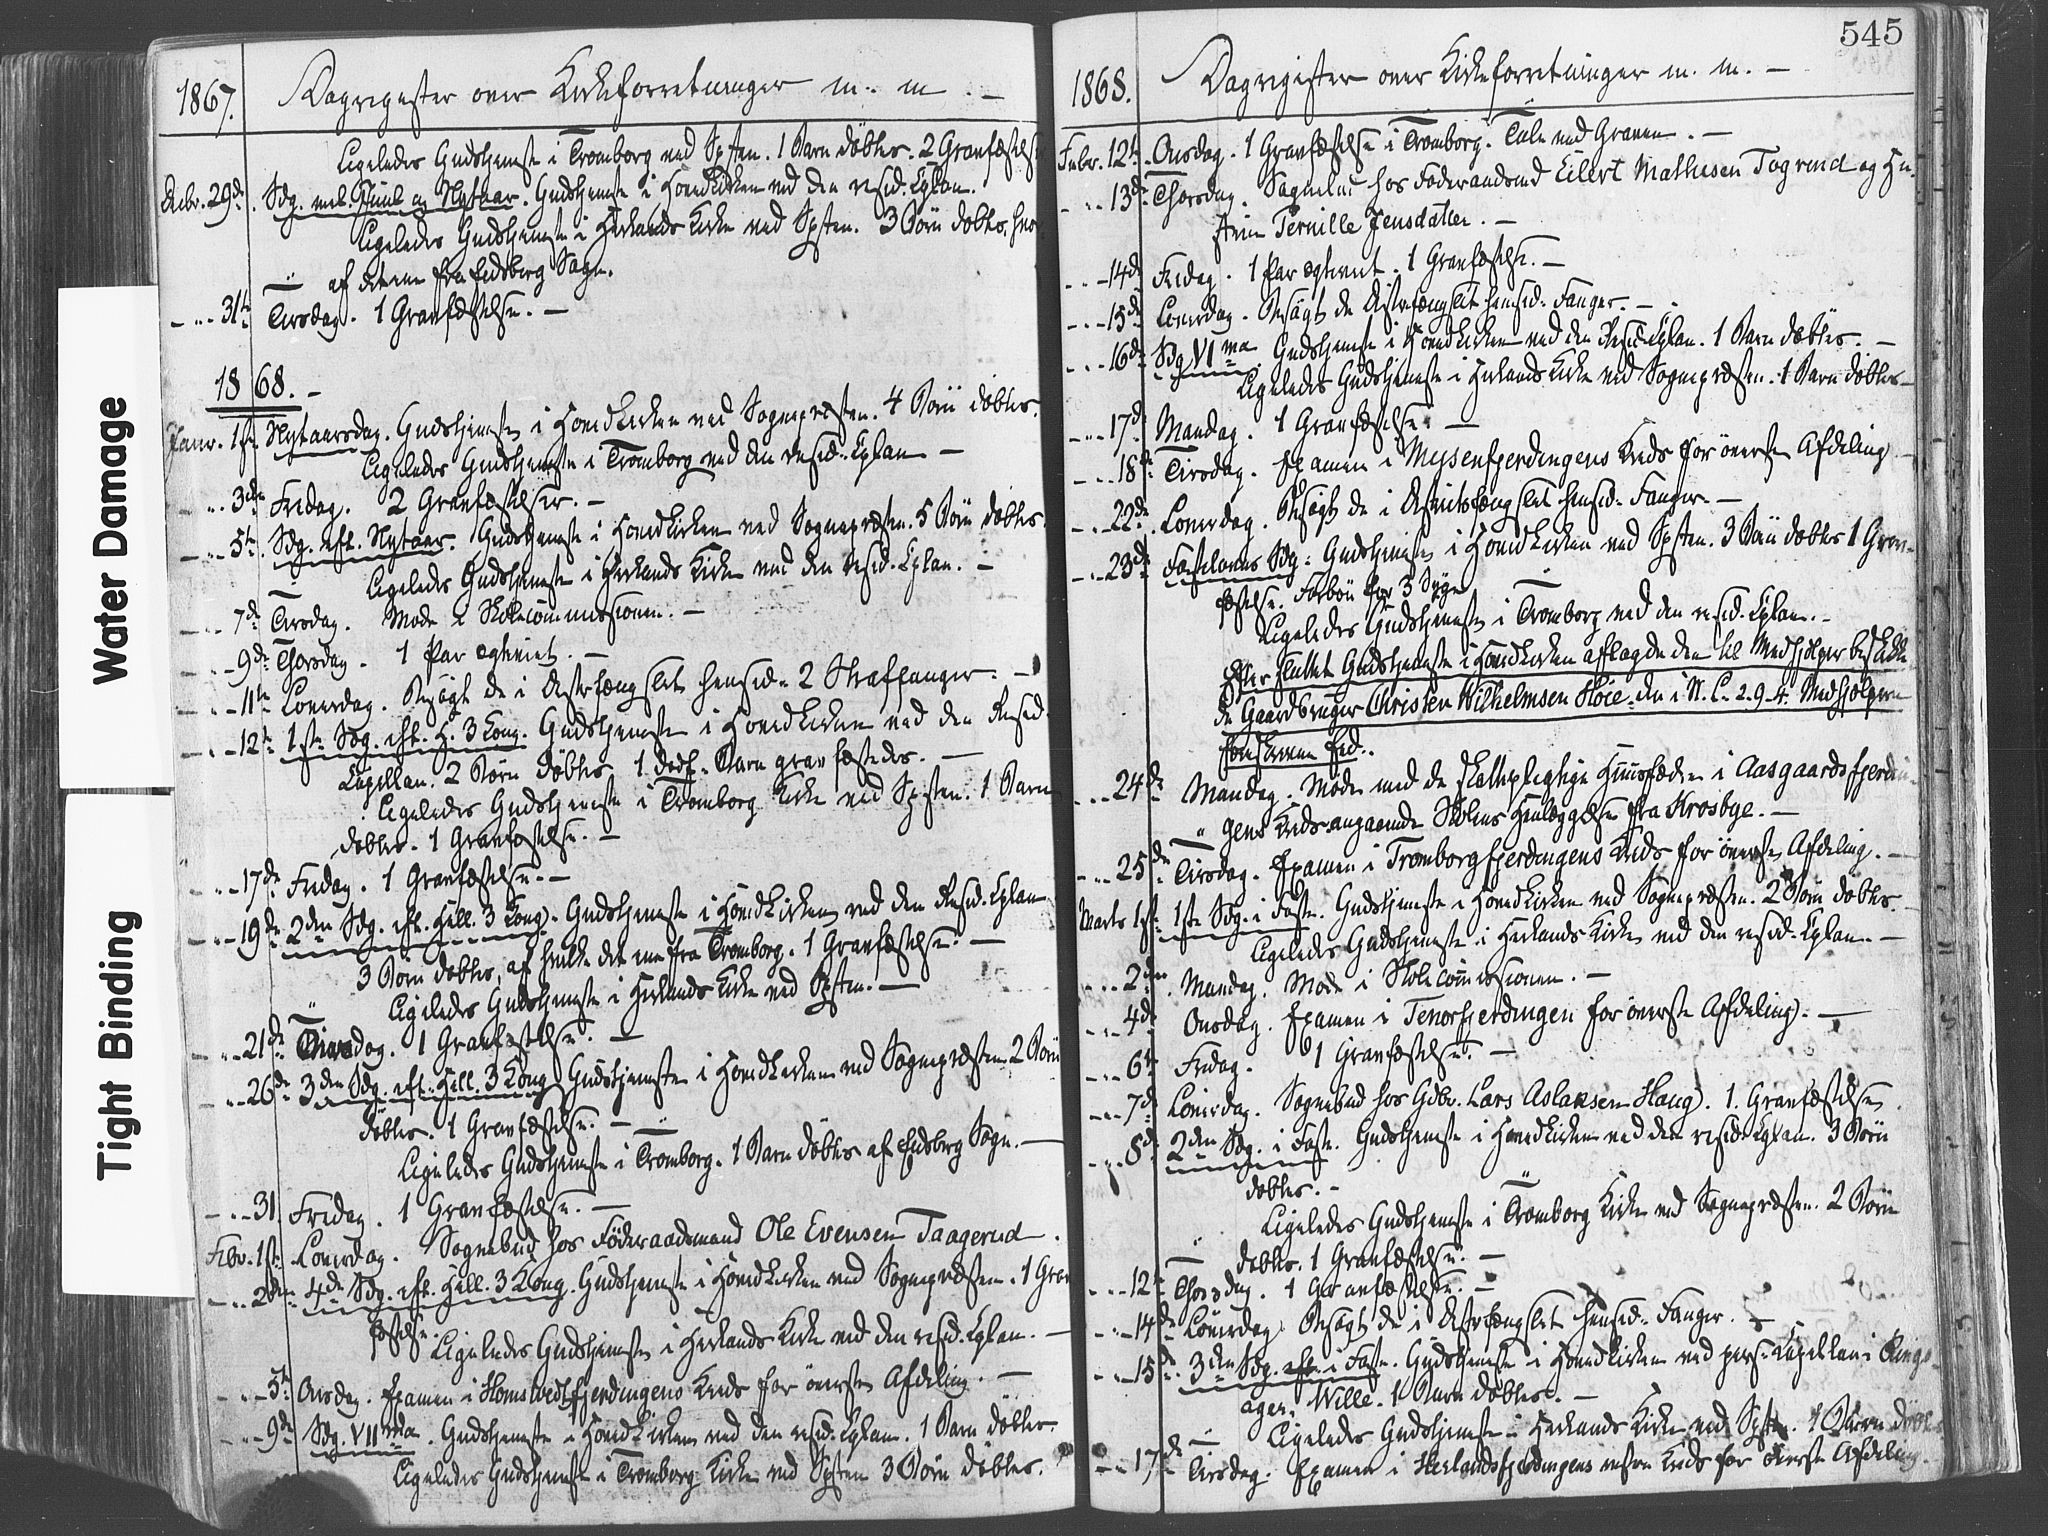 Water Damage
Tight Binding
1867. Dagregister over Kirkeforretninger m. m. —
Ligeledes Gudstjeneste i Tromborg ved Spsten. 1 Barn döbtes. 2 Gravfæstelser
Decbr. 29de Sdg. mel. Juul og Nytaar. Gudstjeneste i Hovedkirken ved den resid. Cplan.
Ligeledes Gudstjeneste i Herlands Kirke ved Spsten. 3 Börn döbtes, hvor-
af det ene fra Eidsberg Sogn.
— „ — 31te Tirsdag. 1 Gravfæstelse. —
1868. —
Janr. 1ste Nytaarsdag. Gudstjeneste i Hovedkirken ved Sognepræsten. 4 Börn döbtes.
Ligeledes Gudstjeneste i Tromborg ved den resid. Cplan —
— „ 3die Fredag. 2 Gravfæstelser. —
— „ — 5te Sdg. eft. Nytaar. Gudstjeneste i Hovedkirken ved Sognepræsten. 5 Börn döbtes.
Ligeledes Gudstjeneste i Herlands Kirke ved den resid. Cplan. —
— „ — 7de Tirsdag. Möde i Skolecommissionen. —
— „ — 9de Thorsdag. 1 Par egteviet. —
— „ — 11te Löverdag. Besögt de i Distrfængslet hensid. 2 Straffanger. —
— „ — 12te 1ste Sdg. eft. H. 3 Kong. Gudstjeneste i Hovedkirken ved den Resid.
Capellan. 2 Börn döbtes 1 dödf. Barn gravfæstedes. —
Ligeledes Gudstjeneste i Tromborg Kirke ved Spsten. 1 Barn
döbtes. 1 Gravfæstelse. —
— „ — 17de Fredag. 1 Gravfæstelse. —
— „ — 19de 2den Sdg. eft. Hell. 3 Kong. Gudstjeneste i Hovedkirken ved den Resid. Cplan
3 Börn döbtes, af hvilke det ene fra Tromborg. 1 Gravfæstelse. —
Ligeledes Gudstjeneste i Herlands Kirke ved Spsten. —
— „ — 21de Tirsdag. 1 Gravfæstelse. —
— „ — 26de 3den Sdg. eft. Hell. 3 Kong. Gudstjeneste i Hovedkirken ved Sognepræsten 2 Börn
döbtes. 1 Gravfæstelse. —
Ligeledes Gudstjeneste i Tromborg. 1 Barn döbtes af Eidsberg Sogn. —
— „ — 31. Fredag. 1 Gravfæstelse. —
Febr. 1ste Löverdag. Sognebud hos Föderaadsmand Ole Evensen Taagerud.
— „ 2den 4de Sdg. eft. Hell. 3 Kong. Gudstjeneste i Hovedkirken ved Sognepræsten. 1 Grav-
fæstelse.
Ligeledes Gudstjeneste i Herlands Kirke ved den resid. Cplan. —
— „ — 5te Onsdag. Examen i Homstvedtfjerdingens Kreds for överste Afdeling. —
— „ — 9de Sdg. VIIma. Gudstjeneste i Hovedkirken ved den resid. Cplan. 1 Barn döbtes.
Ligeledes Gudstjeneste i Tromborg Kirke ved Spsten 3 Börn döbtes.
545
1868. Dagregister over Kirkeforretninger m. m. —
Febr. 12te Onsdag. 1 Gravfæstelse i Tromborg. Tale ved Graven. —
— „ — 13de Thorsdag. Sognebud hos Föderaadsmd Eilert Mathesen Togrud og Hu-
struе Pernille Jensdatter. —
— „ — 14de Fredag. 1 Par egteviet. 1 Gravfæstelse. —
— „ — 15de Löverdag. Besögt de i Distrfængslet hensid. Fanger. —
— „ — 16de Sdg. VIma Gudstjeneste i Hovedkirken ved den Resid. Cplan. 1 Barn döbtes. —
Ligeledes Gudstjeneste i Herlands Kirke ved Sognepræsten. 1 Barn döbtes —
— „ — 17de Mandag. 1 Gravfæstelse. —
— „ — 18de Tirsdag. Examen i Mysenfjerdingens Kreds for överste Afdeling
— „ — 22de Löverdag. Besögt de i Distriktsfængslet hensid. Fanger. —
— „ — 23de Fastelavns Sdg: Gudstjeneste i Hovedkirken ved Spsten. 3 Börn döbtes 1 Grav-
fæstelse. Forbön for 3 Syge
Ligeledes Gudstjeneste i Tromborg ved den resid. Cplan. —
Efter sluttet Gudstjeneste i Hovedkirken aflagde den til Medhjelper beskikke-
de Gaardbruger Christen Wilhelmsen Höie den i N. L. 2. 9. 4. Medhjelpere
foreskrevne Eed.
— „ — 24de Mandag. Möde med de skatpligtige Huusfædre i Aasgaardsfjerdin-
gens Kreds angaaende Skolens Henlæggelse fra Krosbye. —
— „ — 25de Tirsdag. Examen i Tromborgfjerdingens Kreds for överste Afdeling. —
Marts 1ste 1ste Sdg. i Faste. Gudstjeneste i Hovedkirken ved Sognepræsten. 2 Börn döbtes.
Ligeledes Gudstjeneste i Herlands Kirke ved den resid. Cplan. —
— „ — 2den Mandag. Möde i Skolecommissionen. —
— „ — 4de Onsdag. Examen i Tenorfjerdingen for överste Afdeling. —
— „ — 6te Fredag. 1 Gravfæstelse. —
— „ — 7de Löverdag. Sognebud hos Gdbr. Lars Aslaksen Haug. 1. Gravfæstelse.
— „ — 8de 2den Sdg. i Faste. Gudstjeneste i Hovedkirken ved den resid. Cplan. 3 Börn
döbtes. —
Ligeledes Gudstjeneste i Tromborg Kirke ved Sognepræsten. 2 Börn
döbtes. 1 Gravfæstelse. —
— „ — 12te Thorsdag. 1 Gravfæstelse. —
— „ — 14de Löverdag Besögt de i Distrfængslet hensid. Fanger. —
— „ — 15de 3die Sdg. eft. i Faste. Gudstjeneste i Hovedkirken ved pers. Kapellan i Rings-
ager, Wille. 1 Barn döbtes. —
Ligeledes Gudstjeneste i Herlands Kirke ved Spsten. 1 Barn döbtes
— „ — 17de Tirsdag. Examen i Herlandsfjerdingens Kreds for överste Afdeling.